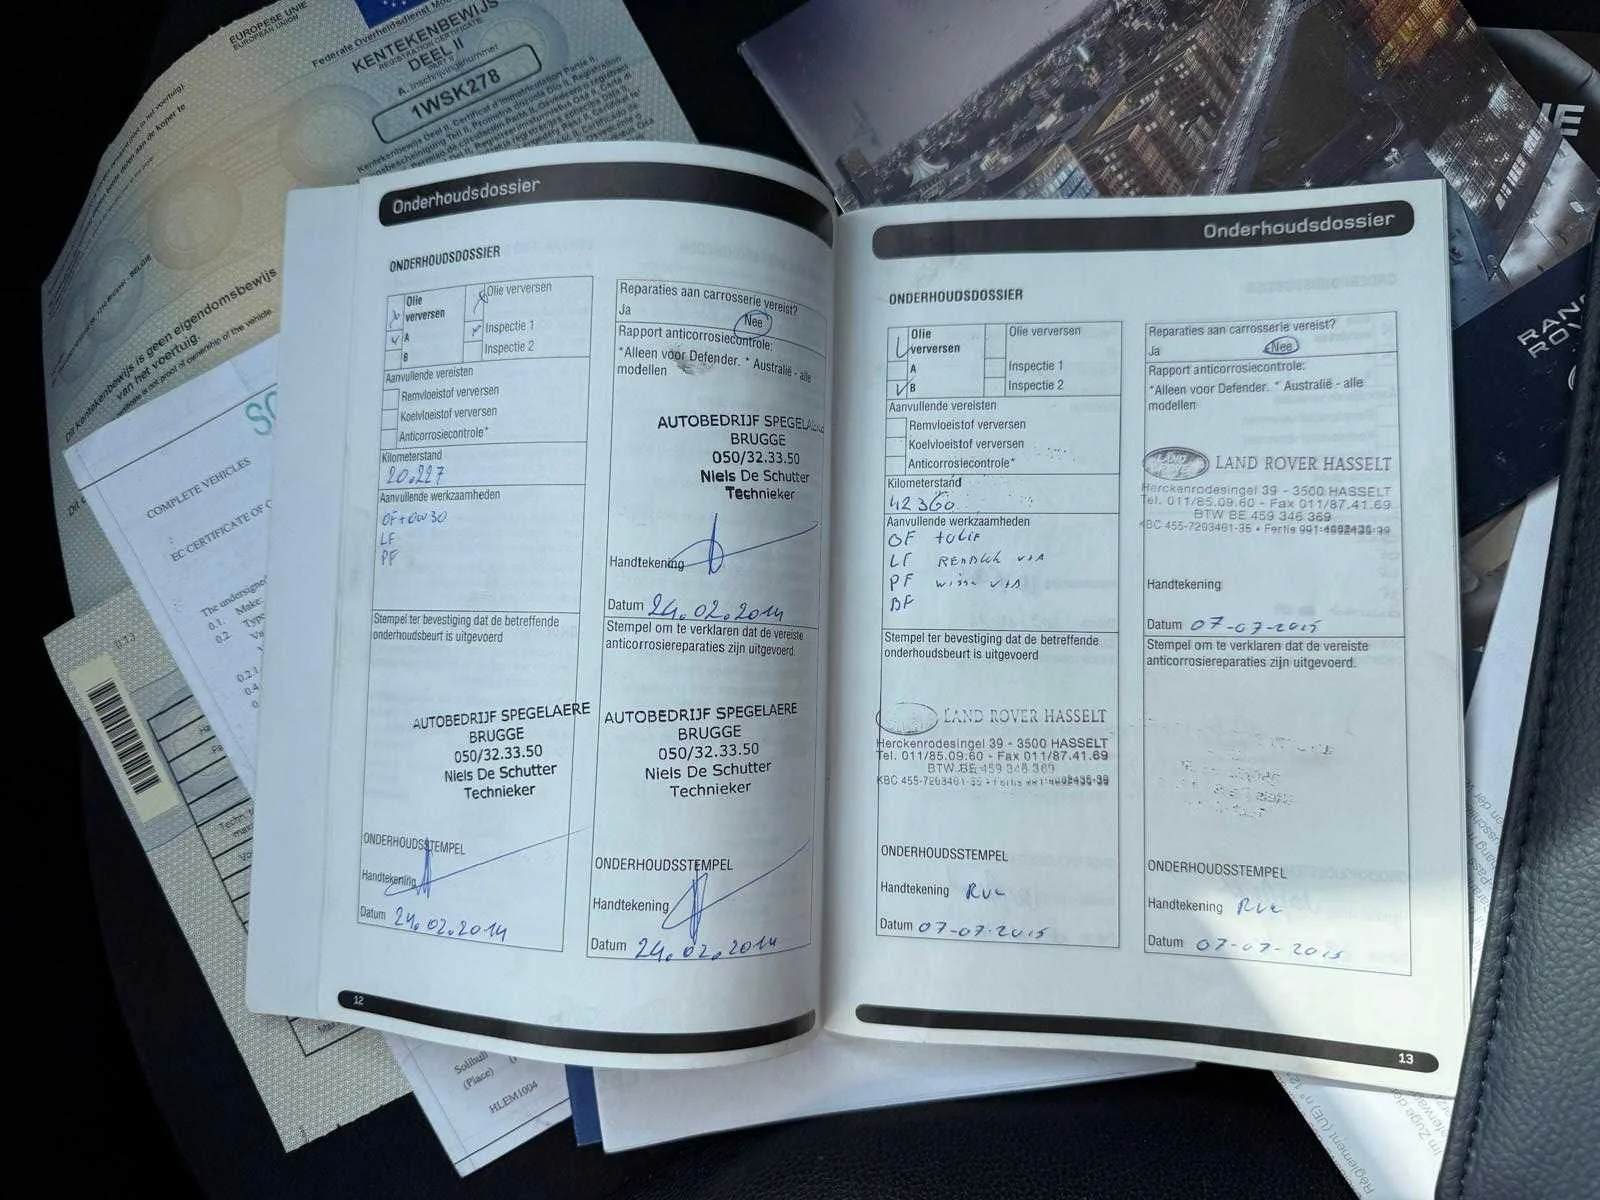 EUROPESE UNIE
EUROPEAN UNION
KENTEKENBEWIJS
REGISTRATION CERTIFICATE
DEEL II
PART II
A. Inschrijvingsnummer
1WSK278
Dit Kentekenbewijs is geen eigendomsbewijs
van het voertuig.
COMPLETE VEHICLES
EC CERTIFICATE OF C
The undersigne
0.1. Make:
0.2. Type
Solihull
(Place)
HLEM1004
Onderhoudsdossier
ONDERHOUDSDOSSIER
Olie verversen
A
B
Olie verversen
Inspectie 1
Inspectie 2
Aanvullende vereisten
Remvloeistof verversen
Koelvloeistof verversen
Anticorrosiecontrole*
Kilometerstand
20.227
Aanvullende werkzaamheden
OF+0W30
LF
PF
Stempel ter bevestiging dat de betreffende
onderhoudsbeurt is uitgevoerd
AUTOBEDRIJF SPEGELAERE
BRUGGE
050/32.33.50
Niels De Schutter
Technieker
ONDERHOUDSSTEMPEL
Handtekening
Datum 24.02.2014
Reparaties aan carrosserie vereist?
Ja
Nee
Rapport anticorrosiecontrole:
*Alleen voor Defender. * Australië - alle
modellen
AUTOBEDRIJF SPEGELAERE
BRUGGE
050/32.33.50
Niels De Schutter
Technieker
Handtekening
Datum 24.02.2014
Stempel om te verklaren dat de vereiste
anticorrosiereparaties zijn uitgevoerd.
AUTOBEDRIJF SPEGELAERE
BRUGGE
050/32.33.50
Niels De Schutter
Technieker
ONDERHOUDSSTEMPEL
Handtekening
Datum 24.02.2014
12
Onderhoudsdossier
ONDERHOUDSDOSSIER
Olie verversen
A
B
Olie verversen
Inspectie 1
Inspectie 2
Aanvullende vereisten
Remvloeistof verversen
Koelvloeistof verversen
Anticorrosiecontrole*
Kilometerstand
42360
Aanvullende werkzaamheden
OF + olie
LF
PF
BF
Stempel ter bevestiging dat de betreffende
onderhoudsbeurt is uitgevoerd
LAND ROVER HASSELT
Herckenrodesingel 39 - 3500 HASSELT
Tel. 011/85.09.60 - Fax 011/87.41.69
BTW BE 459 346 369
KBC 455-7263461-35
ONDERHOUDSSTEMPEL
Handtekening
Datum 07-07-2015
Reparaties aan carrosserie vereist?
Ja
Nee
Rapport anticorrosiecontrole:
*Alleen voor Defender. * Australië - alle
modellen
LAND ROVER HASSELT
Herckenrodesingel 39 - 3500 HASSELT
Tel. 011/85.09.60 - Fax 011/87.41.69
BTW BE 459 346 369
KBC 455-7263461-35
Handtekening
Datum 07-07-2015
Stempel om te verklaren dat de vereiste
anticorrosiereparaties zijn uitgevoerd.
ONDERHOUDSSTEMPEL
Handtekening
Datum 07-07-2015
13